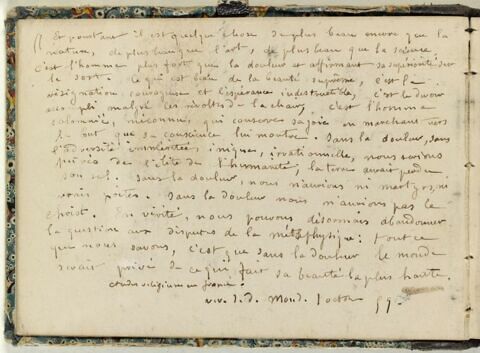 Et pourtant il est quelque chose de plus beau encore que la
nature, de plus beau que l'art, de plus beau que la science,
c'est l'homme plus fort que la douleur et affirmant sa supériorité sur
le sort. Ce qui est beau de la beauté suprême, c'est la
résignation courageuse et l'espérance indestructible, c'est le devoir
malgré les révoltes de la chair, c'est l'homme
calomnié, méconnu, qui conserve sa joie en marchant vers
le but que sa conscience lui montre. Sans la douleur, sans
l'adversité imméritée, inique, irrationnelle, nous serions
privés de l'élite de l'humanité, la terre aurait perdu
son sel. Sans la douleur, nous n'aurions ni martyrs, ni
vrais poètes. Sans la douleur nous n'aurions pas le
Christ. En vérité, nous pouvons désormais abandonner
la question aux disputes de la métaphysique: tout ce
que nous savons, c'est que sans la douleur le monde
serait privé de ce qui fait sa beauté la plus haute.
études religieuses en france.
rev. d. d. Mond. 1 octob 59.